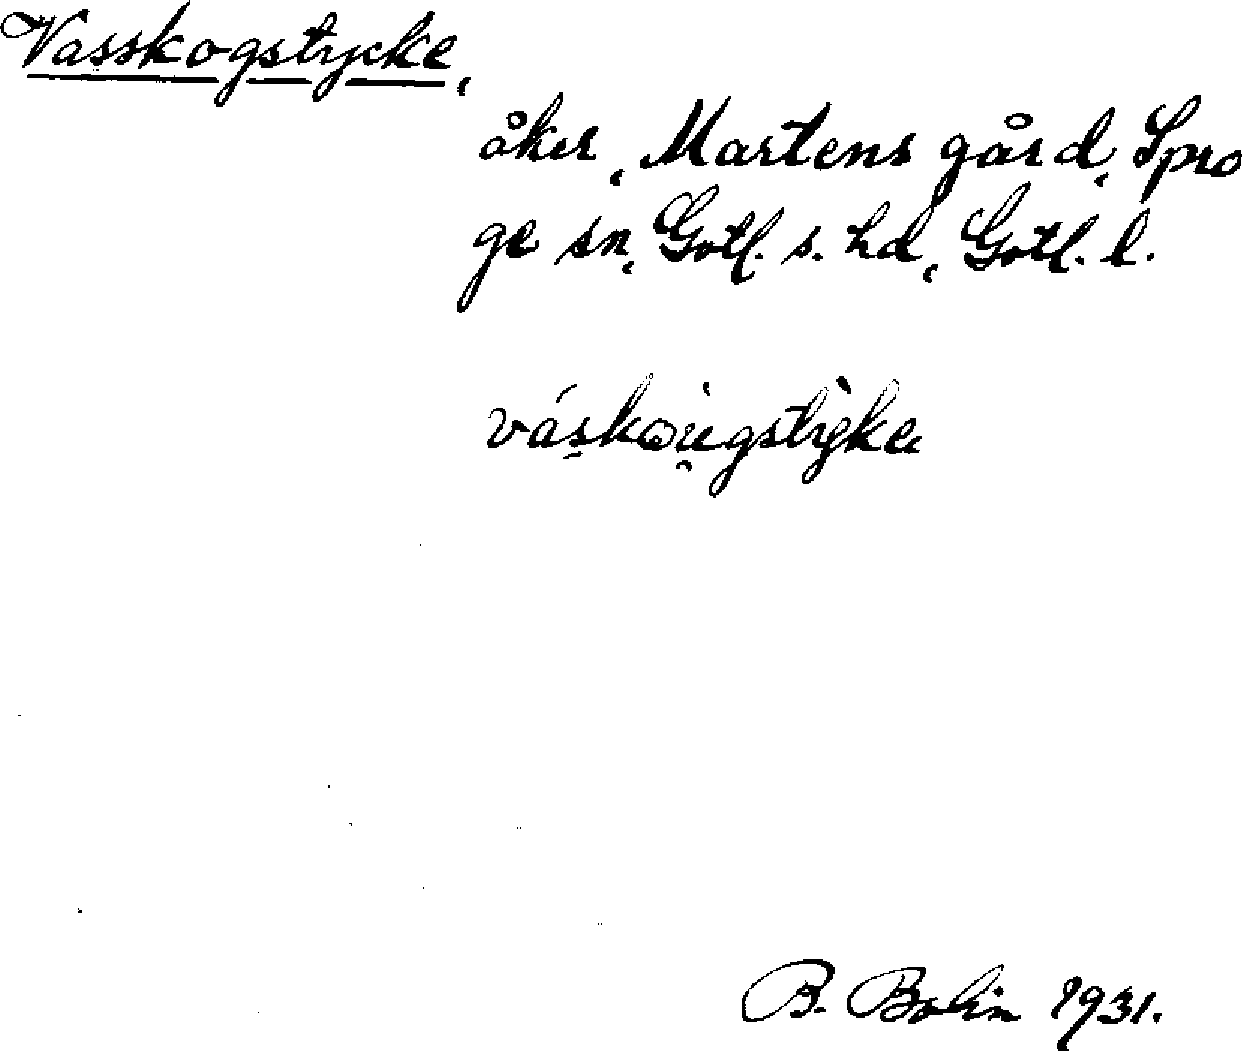 Vasskogstycke,
åker, Martens gård, Spro
ge sn, Gotl. s. hd, Gotl. l.
B. Bolin 1931.